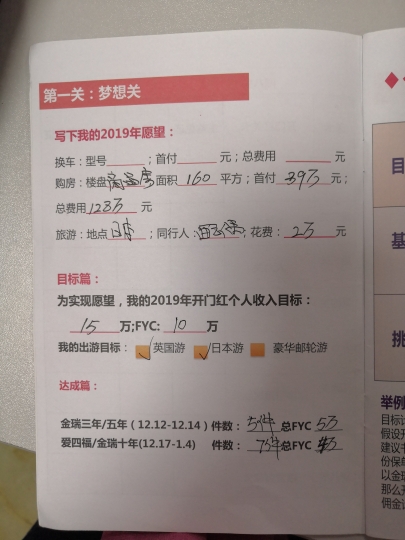 第一关：梦想关
写下我的2019年愿望：
换车：型号 ；首付 元；总费用 元
购房：楼盘 面积 160 平方；首付 39万 元；
总费用 123万 元
旅游：地点 日本 ；同行人： ，花费： 2万 元
目标篇：
为实现愿望，我的2019年开门红个人收入目标：
15 万;FYC: 10 万
我的出游目标： ✓英国游 ✓日本游 豪华邮轮游
达成篇：
金瑞三年/五年（12.12-12.14）件数： 5件 总FYC 5万
爱四福/金瑞十年(12.17-1.4) 件数： 7件 总FYC 万
目
基
挑
举例
目标计
假设开
建议千
份保单
以金瑞
那么开
佣金计